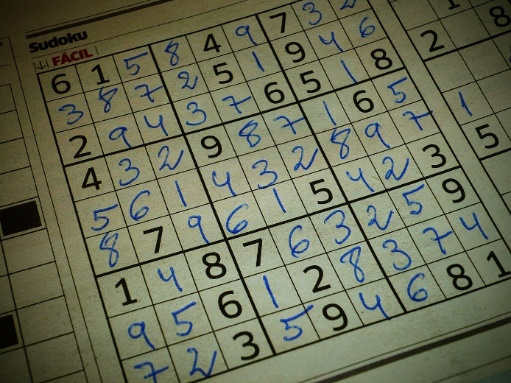 Sudoku
FÁCIL
6 1 5 8 4 9 7 3 2
3 8 7 2 5 1 9 4 6
2 9 4 3 7 6 5 1 8
4 3 2 9 8 7 1 6 5
5 6 1 4 3 2 8 9 7
8 7 9 6 1 5 4 2 3
1 4 8 7 6 3 2 5 9
9 5 6 1 2 8 3 7 4
7 2 3 5 9 4 6 8 1
1
2 8
1
5